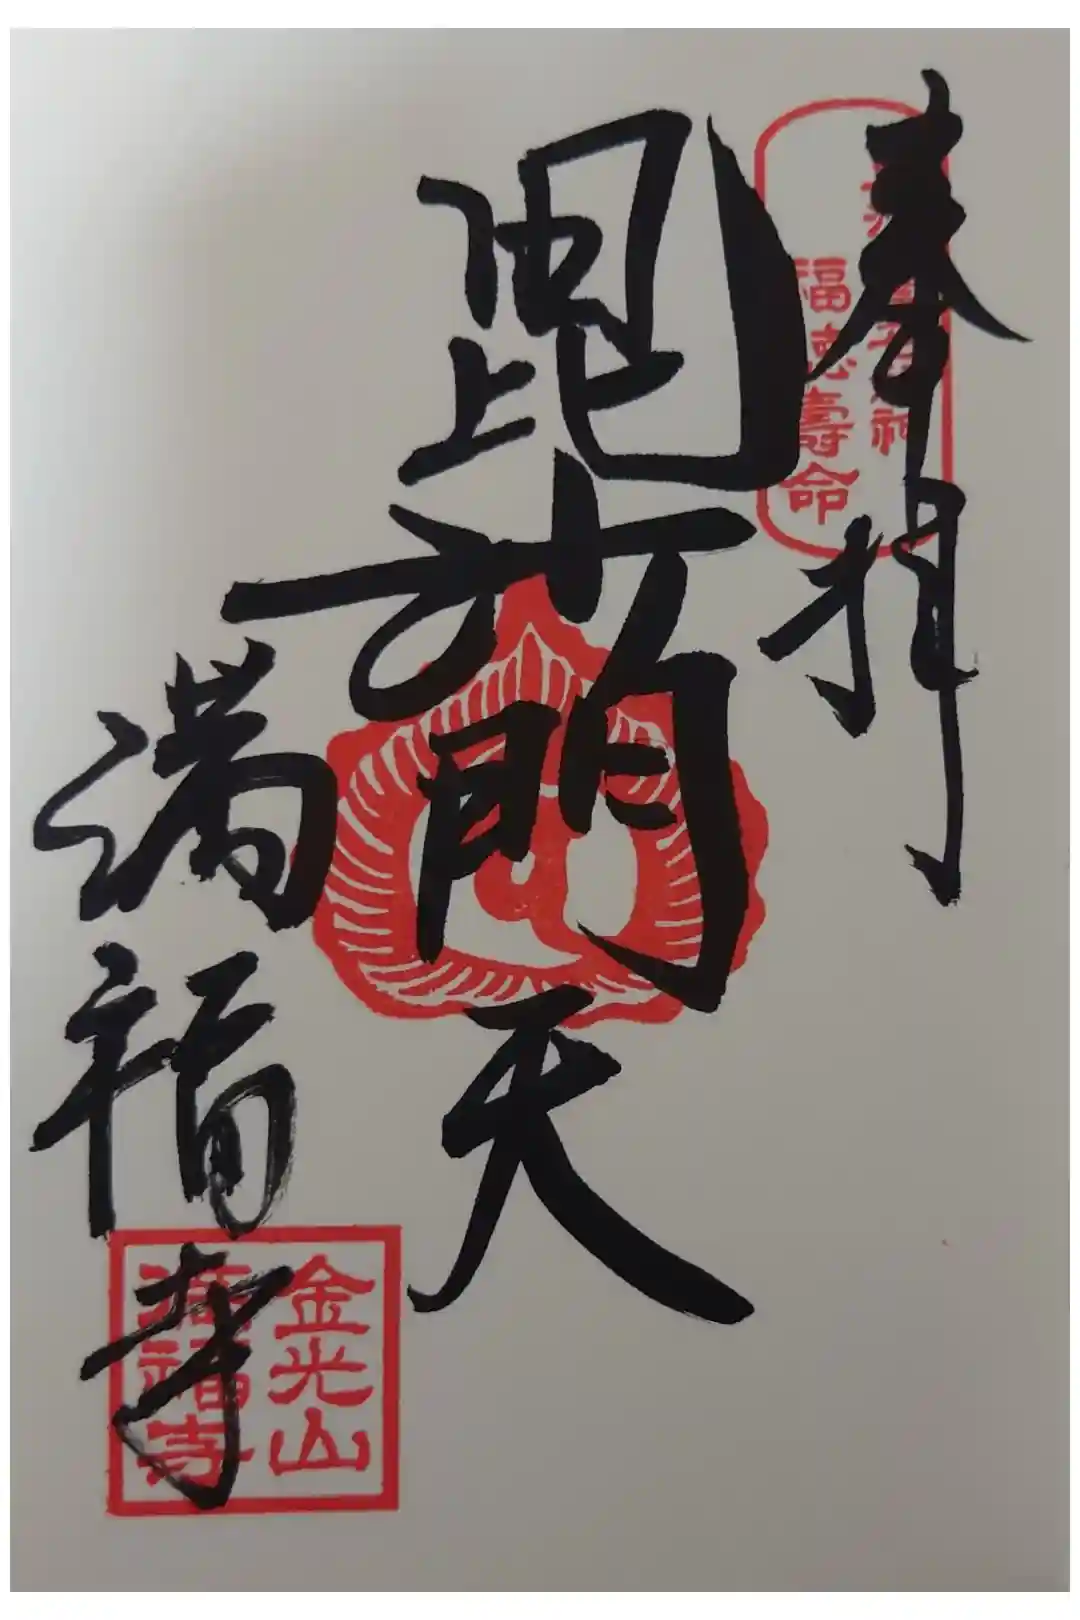 奉拝
福徳壽命
毘沙門天
満福寺
金光山
満福寺